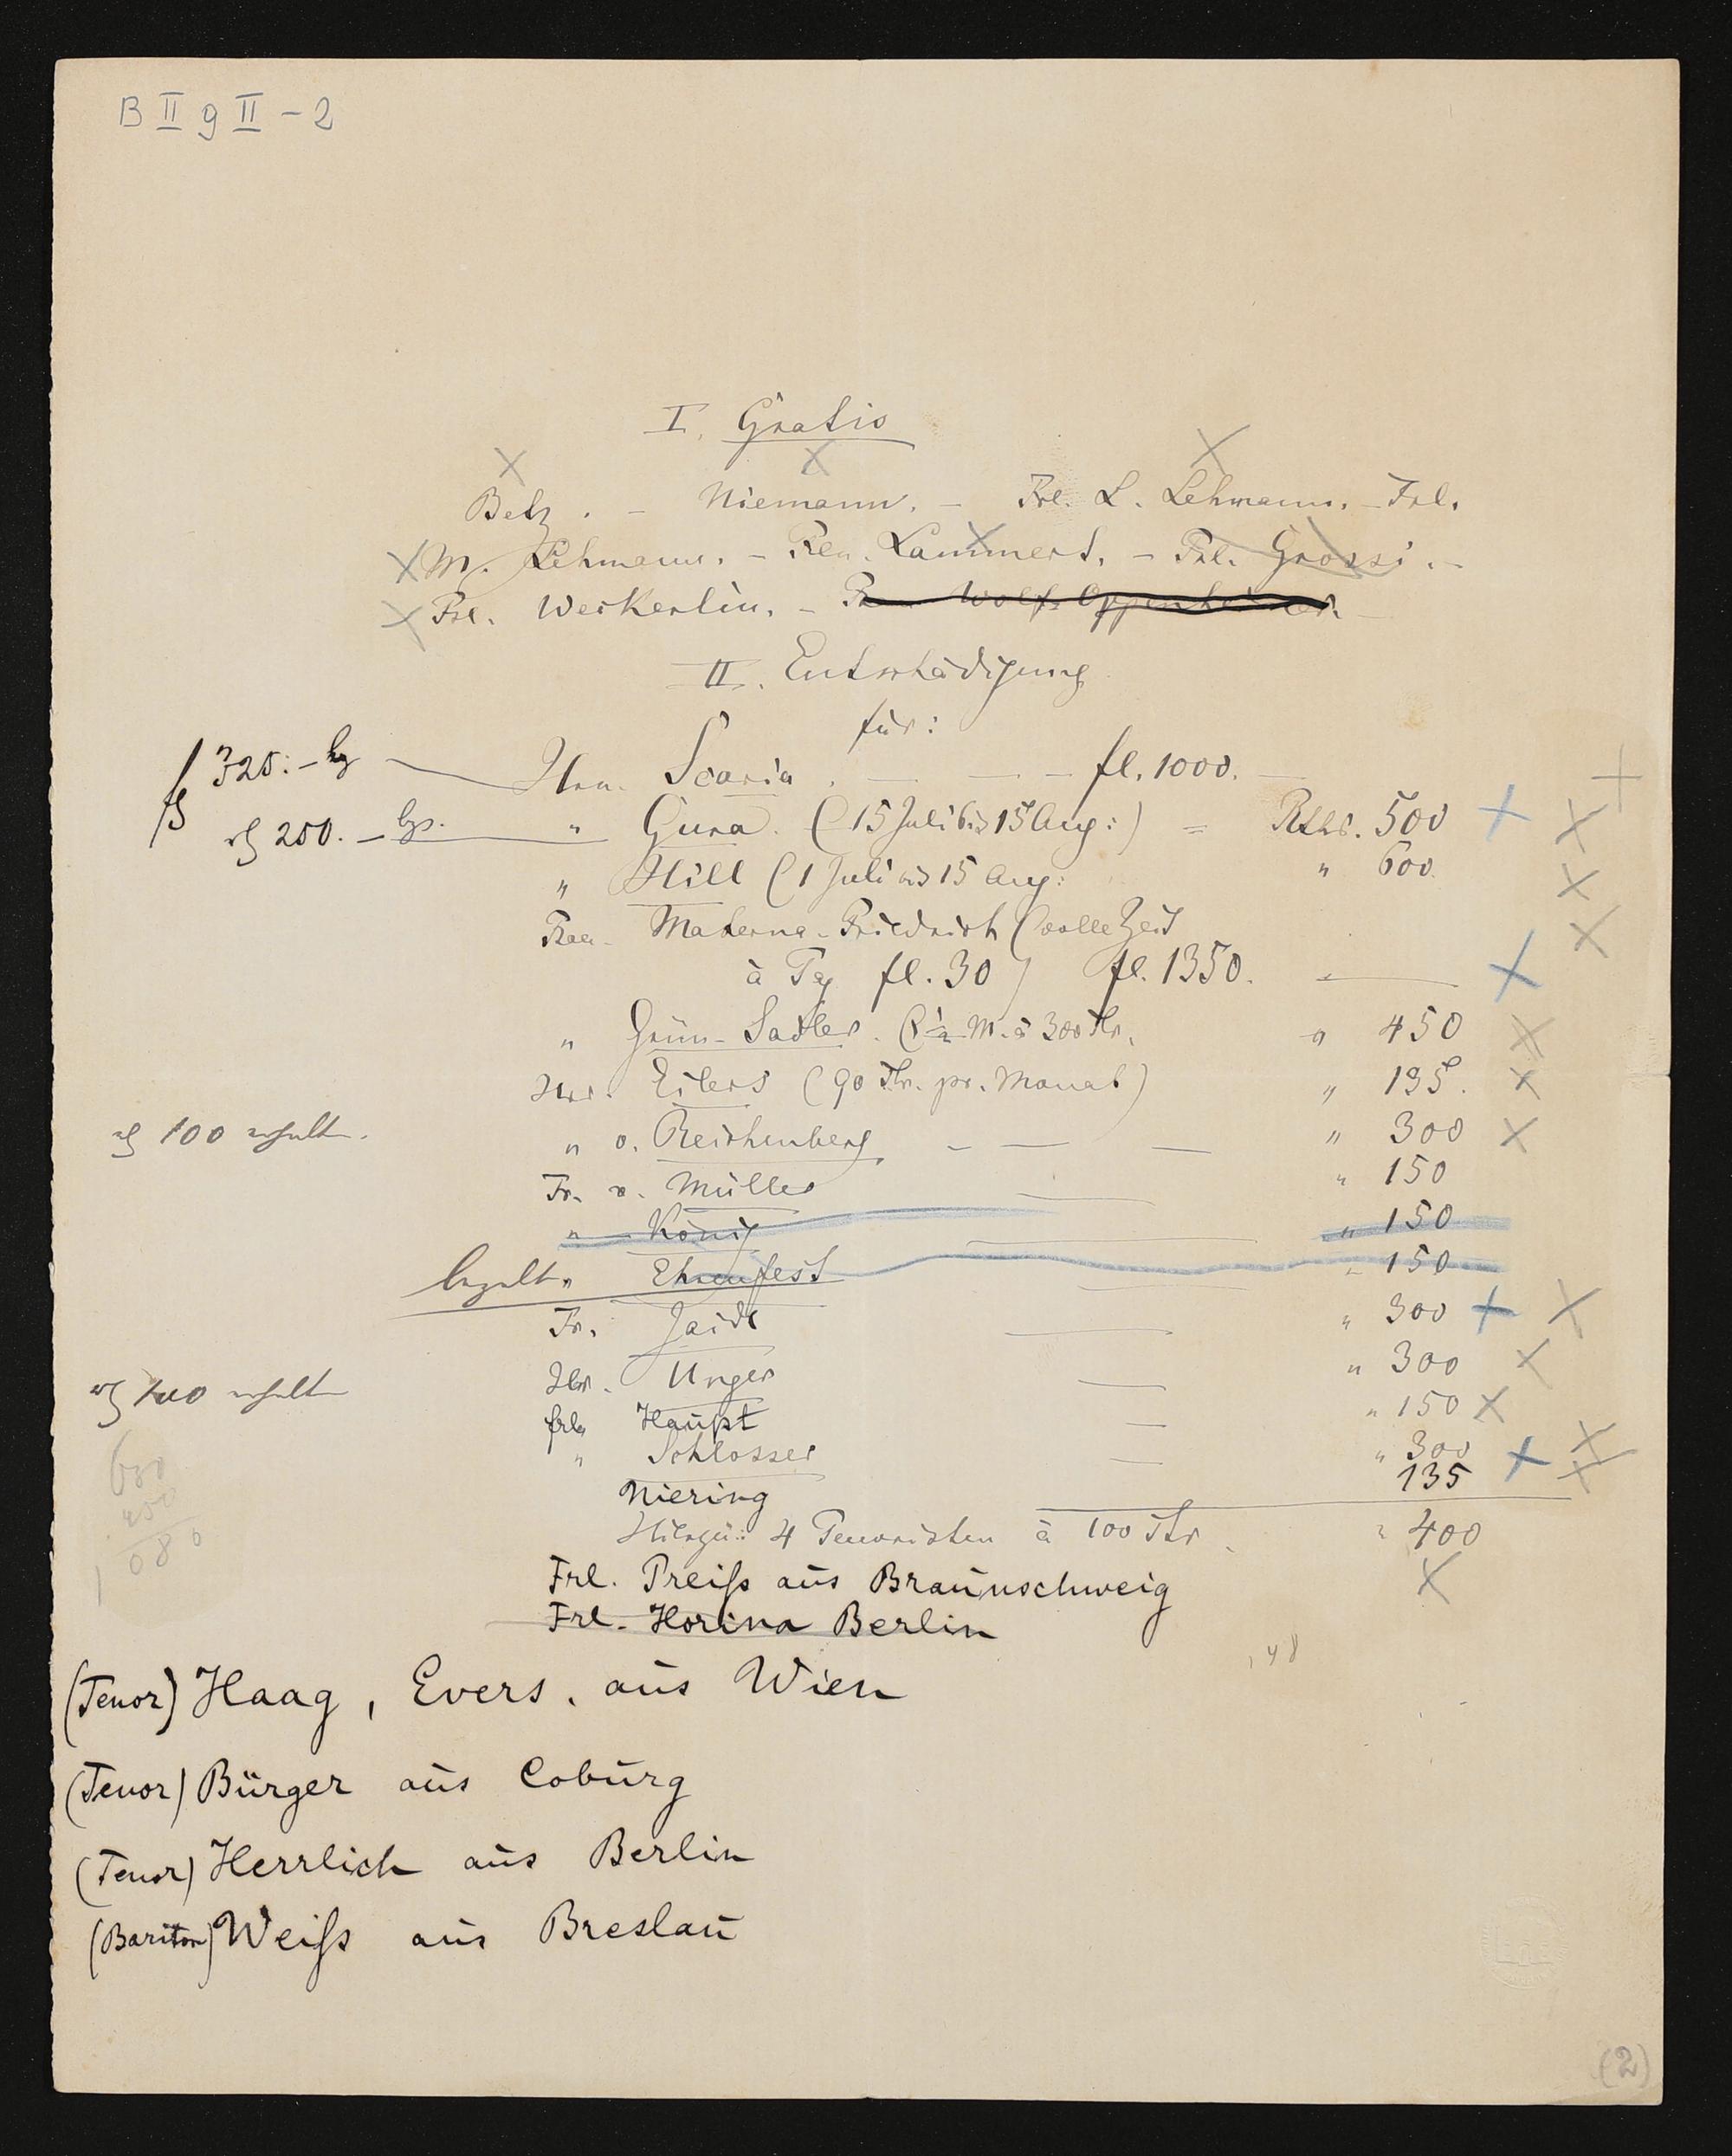 B II g II - 2
I. Gratis
Betz. - Niemann. - Frl. L. Lehmann. - Frl.
M. Lehmann. - Frln. Lammert. - Frl. Grossi. -
Frl. Weckerlin. - Frau Wolf-Oppenheimer.
II. Entschädigung
für:
325.- Hrn. Scaria. fl. 1000.
250. - " Gura. (15 Juli bis 15 Aug:) = Rthlr. 500
" Hill (1 Juli bis 15 Aug: " 600.
Frau Materna-Friedrich (volle Zeit
à Tag fl. 30) fl. 1350.
" Grün-Sadler. 300 Thr. " 450
Hrr. Eilers (90 Thr. pr. Monat) " 135.
100 erhalten. " v. Reichenberg " 300
Fr. v. Müller " 150
" König " 150
bezalt " Ehrenfest " 150
Fr. Jaide " 300
Hr. Unger " 300
100 erhalten frln Haupt " 150
" Schlosser " 300
Niering 135
Hierzu: 4 Tenoristen à 100 Thr. " 400
Frl. Preiſs aus Braunschweig
Frl. Horina Berlin
48
(Tenor) Haag, Evers. aus Wien
(Tenor) Bürger aus Coburg
(Tenor) Herrlich aus Berlin
(Bariton) Weiſs aus Breslau
(2)